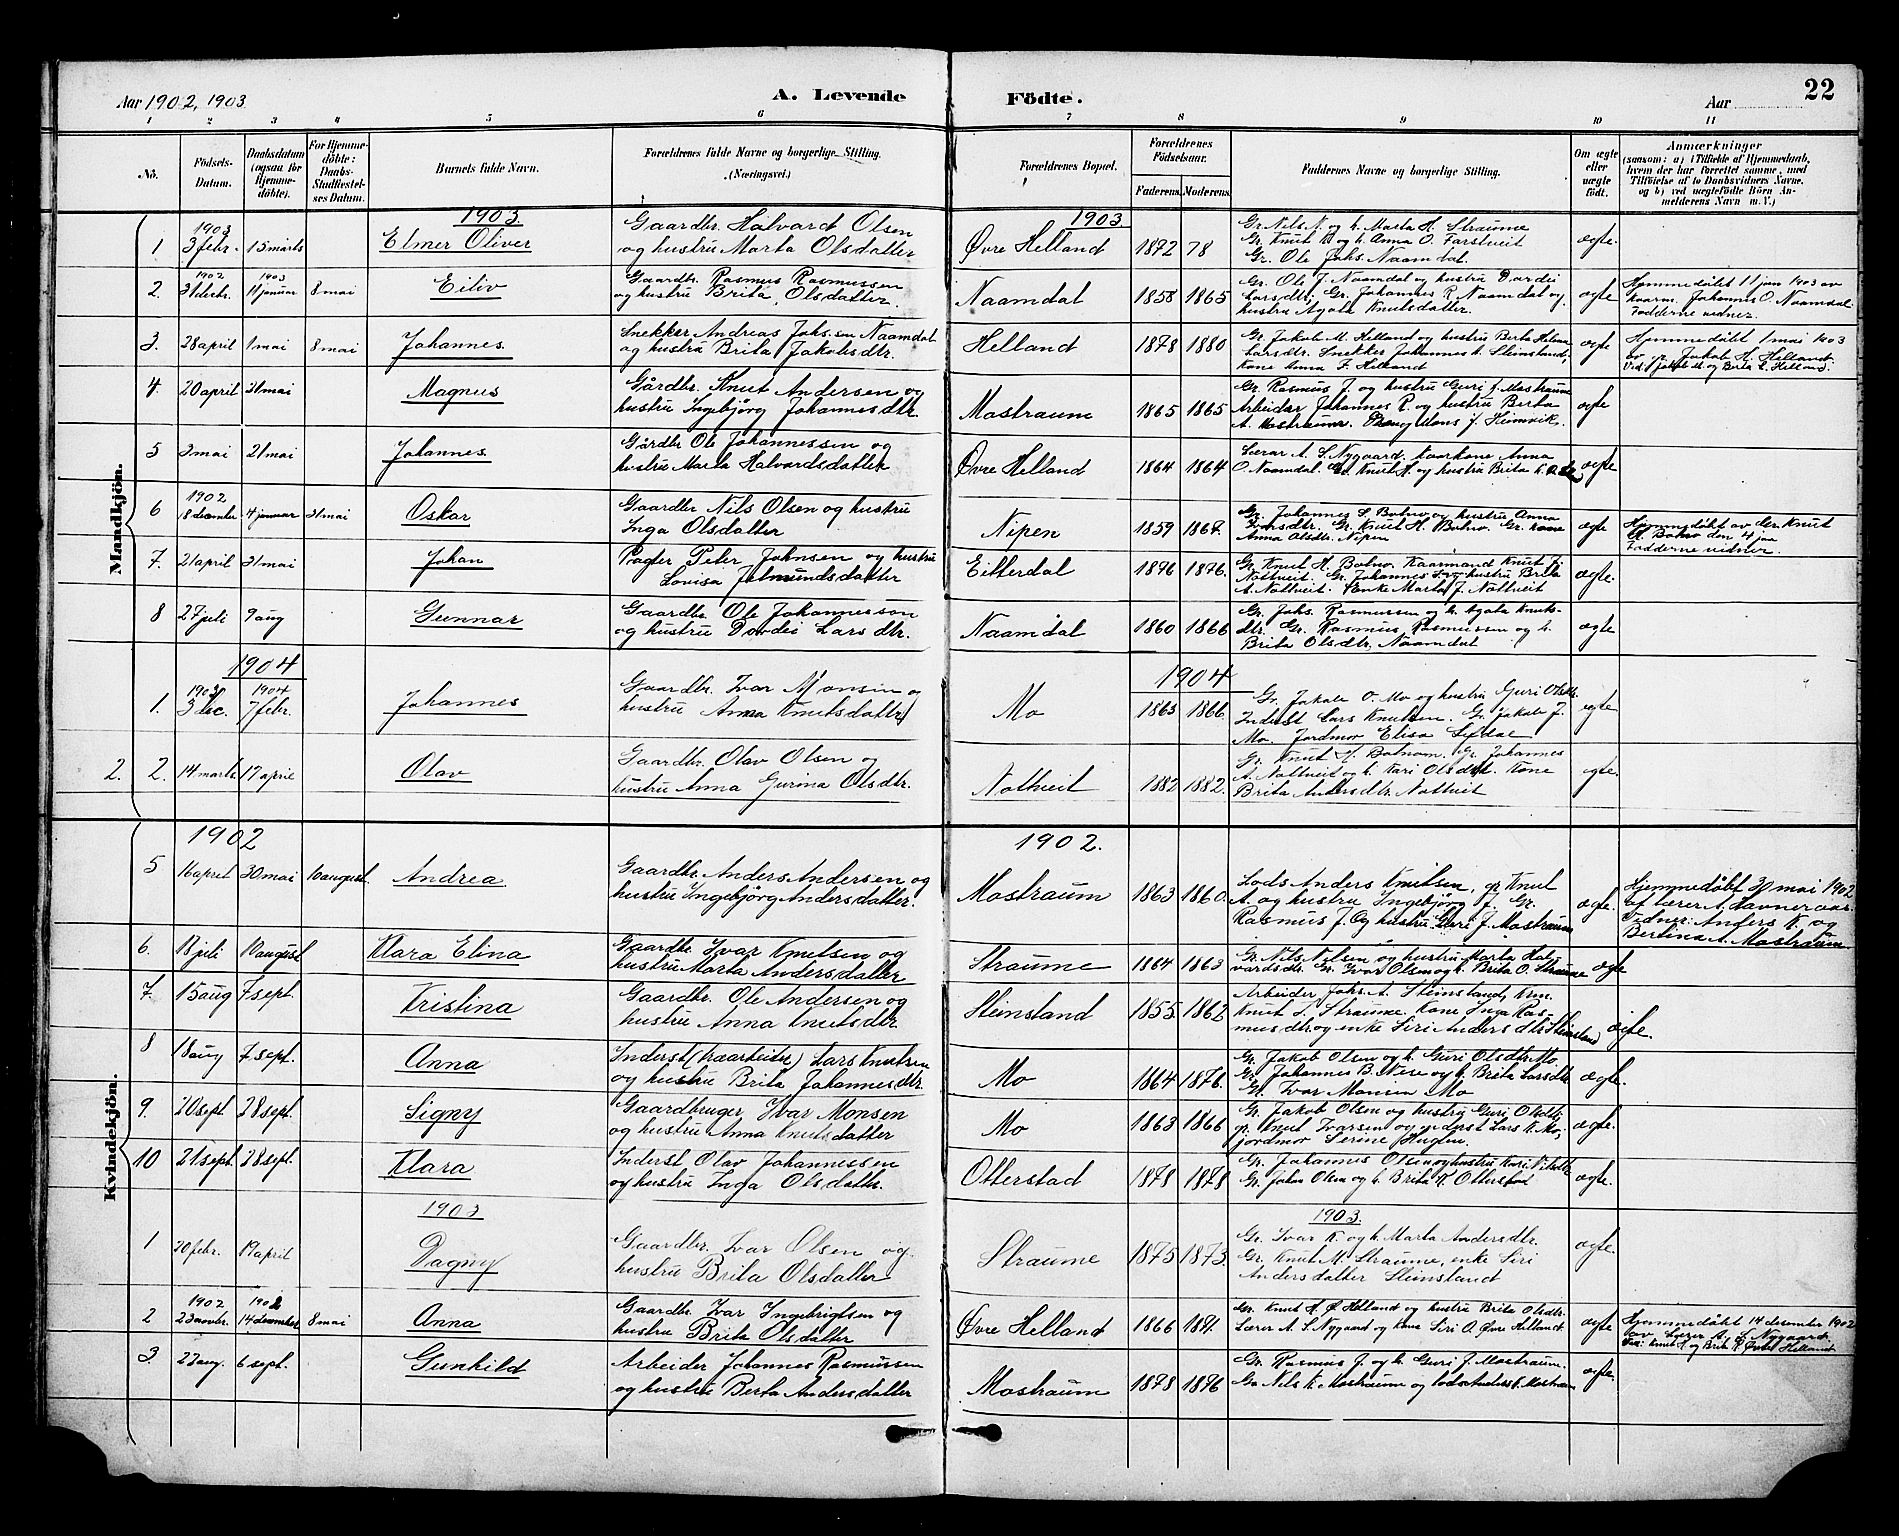 Aar 1902, 1903
A. Levende Födte.
Aar
22
1 2 3 4 5 6 7 8 9 10 11
No.
Födsels-Datum.
Daabsdatum (ogsaa for Hjemmedöbte).
For Hjemmedöbte: Daabs-Stadfæstelses Datum.
Barnets fulde Navn.
Forældrenes fulde Navne og borgerlige Stilling. (Næringsvei.)
Forældrenes Bopæl.
Forældrenes Födselsaar.
Faderens. Moderens.
Faddernes Navne og borgerlige Stilling.
Om ægte eller uægte födt.
Anmærkninger
(saasom: a) i Tilfælde af Hjemmedaab, hvem der har forrettet samme, med Tilföielse af to Daabsvidners Navne, og b) ved uægtefödte Börn Anmelderens Navn m. V.)
Mandkjön.
1903.
1903.
1 1903 3 febr. 15 marts Elmer Oliver Gaardbr. Halvard Olsen og hustru Marta Olsdatter Øvre Helland 1872 78 Gr. Nils N. og h. Marta H. Straume Gr. Knut og h. Anna O. Farstveit Gr. Ole Johs. Naamdal. ægte
2. 1902 31 decbr. 1903 11 januar 8 mai Eiliv Gaardbr. Rasmus Rasmussen og hustru Brita Olsdatter. Naamdal 1858 1865 Gr. Ole J. Naamdal og hustru Dordei Larsdtr. Gr. Johannes R. Naamdal og hustru Agata Knutsdatter. ægte Hjemmedøbt 11 jan 1903 av Johannes O. Naamdal Fadderne vidner.
3. 28 april 1 mai 8 mai Johannes. Snekker Andreas Johs.son Naamdal og hustru Brita Jakobsdtr. Helland 1878 1880 Gr. Jakob M. Helland og hustru Berta Larsdtr. Snekker Johannes K. Steinsland, Kone Anna J. Helland ægte Hjemmedøbt 1 mai 1903 av gr. Jakob M. Helland.
4. 20 april 31 mai Magnus Gårdbr. Knut Andersen og hustru Ingebjörg Johannesdtr. Mostraum 1865 1865 Gr. Rasmus J. og hustru Guri J. Mostraum Arbeider Johannes R. og hustru Berta A. Mostraum. Mons J. Heimvik. ægte
5 3 mai 21 mai Johannes Gårdbr Ole Johannessen og hustru Marta Halvardsdatter Øvre Helland 1864 1864 Lærar A. S. Nygaard. Kaarkone Anna O. Naamdal. Gr. Knut H. og hustru Brita K. ægte
6 1902 18 december 4 januar 31 mai Oskar Gaardbr Nils Olsen og hustru Inga Olsdatter Nipen 1859 1867. Gr. Johannes S. Botnv og hustru Anna Ivarsdtr. Gr. Knut H. Botnv. Gr. Kone Anna Olsdtr. Nipen ægte Hjemmedøbt av Gr. Knut H. Botnv den 4 jan Fadderne vidner.
7. 21 april 31 mai Johan Peter Johnsen og hustru Lovisa Jetmundsdatter Eitterdal 1876 1876. Gr. Knut H. Botnv. Kaarmand Knut J. Nottveit. Gr. Johannes og hustru Brita A. Nottveit. Enke Marta J. Nottveit ægte
8 27 juli 9 aug Gunnar Gaardbr. Ole Johannesson og hustru Dordei Larsdtr. Naamdal 1860 1866 Gr. Johs. Rasmussen og h. Agata Knutsdtr. Gr. Rasmus Rasmussen og h. Brita Olsdtr, Naamdal ægte
1904
1904
1. 1903 3 dec. 1904 7 febr. Johannes Gaardbr. Ivar Monsen og hustru Anna Knutsdatter Mo 1863 1866. Gr. Jakob O. Mo og hustru Guri Inderst Lars Knutsen. Gr. Jakob J. Mo. Jordmor Elisa ægte
2. 2. 14 marts 17 april Olav Gaardbr. Olav Olsen og hustru Anna Gurina Olsdtr. Nottveit 1882 1882. Gr. Knut H. Botnom. Gr. Johannes A. Nottveit og h. Kari Olsdtr. Kone Brita Andersdtr. Nottveit ægte
Kvindekjön.
1902
1902.
5 16 april 30 mai 10 august. Andrea Gaardbr. Anders Andersen og hustru Ingebjörg Andersdatter. Mostraum 1863 1860. Lods Anders Knutsen, gr. Knut A. og hustru Ingebjörg J. Gr. Rasmus J. Og hustru Guri J. Mostraum ægte. Hjemmedøbt 30 mai 1902 af lærer A. Havneraas. Vidner: Anders K. og Bertina A. Mostraum.
6. juli 10 august Klara Elina Gaardbr. Ivar Knutsen og hustru Marta Andersdatter Straume 1864 1863 Gr. Nils Nilsen og hustru Marta Halvardsdtr. Gr. Ivar Olsen og h. Brita O. Straume ægte
7. 15 aug 7 sept. Kristina Gaardbr. Ole Andersen og hustru Anna Knutsdtr. Steinsland 1855 1862 Arbeider Johs. A. Steinsland, Knut I. Straume. Kone Inga Rasmusdtr. og enke Siri Andersdtr. Steinsland ægte.
8 18 aug 7 sept. Anna Inderst (træarbeider) Lars Knutsen og hustru Brita Johannesdtr. Mo 1864 1876. Gr. Jakob Olsen og h. Guri Olsdtr Mo Gr. Johannes B. Nese og h. Brita Larsdtr Gr. Ivar Monsen Mo ægte.
9. 20 sept. 28 sept. Signy Gaardbruger Ivar Monsen og hustru Anna Knutsdatter Mo 1863 1866 Gr. Jakob Olsen og hustru Guri Olsdtr gr. Knut Ivarsen og inderst Lars K. Mo, jordmor Serine Huglen. ægte.
10 21 sept. 28 sept. Klara Inderst Olav Johannessen og hustru Inga Olsdatter. Otterstad 1878 1878 Gr. Johannes Olsen og hustru Kari Gr. John Olsen og h. Brita K. Otterstad ægte.
1903
1903.
1 20 febr. 19 april Dagny Gaardbr. Ivar Olsen og hustru Brita Olsdatter Straume 1875 1873. Gr. Ivar K. og h. Marta Andersdtr. Gr. Knut M. Straume, enke Siri Andersdatter Steinsland ægte.
2 1902 23 novbr. 1902 14 december 8 mai Anna Gaardbr. Ivar Ingebrigtsen og hustru Brita Olsdatter Øvre Helland 1866 1871. Gr. Knut H. Ø. Helland og hustru Brita Olsdtr. Lærer A. S. Nygaard og Kone Siri O. Øvre Helland. ægte Hjemmedøbt 14 desember 1902 av Lærer A. S. Nygaard. Knut H. og Brita K. Øvre Helland
3. 23 aug. 6 sept. Gunhild Arbeider Johannes Rasmussen og hustru Berta Andersdatter Mostraum 1878 1876 Gr. Rasmus J. og h. Guri J. Mostraum. Gr. Nils K. Mostraum og lods Anders K. Mostraum ægte.